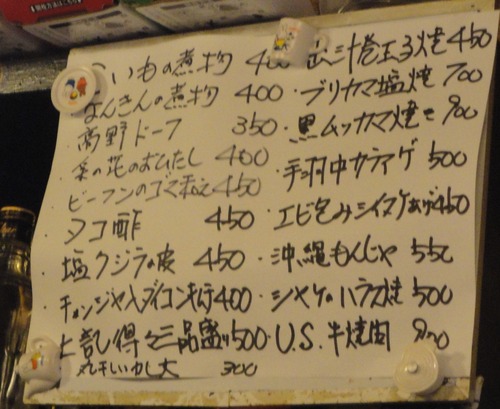 いもの煮物 400
なんきんの煮物 400
高野ドーフ 350
菜の花のおひたし 400
ビーフンのゴマ和え 450
タコ酢 450
塩クジラの皮 450
チャンジャ入ダイコンキムチ 400
上記得々三品盛り 500
丸干しいわし大 300
玉子焼 450
ブリカマ塩焼 700
黒ムツカマ焼き 900
手羽中カラアゲ 500
エビ包みシイタケあげ 450
沖縄もんじゃ 550
シャケのハラス焼 500
U.S.牛焼肉